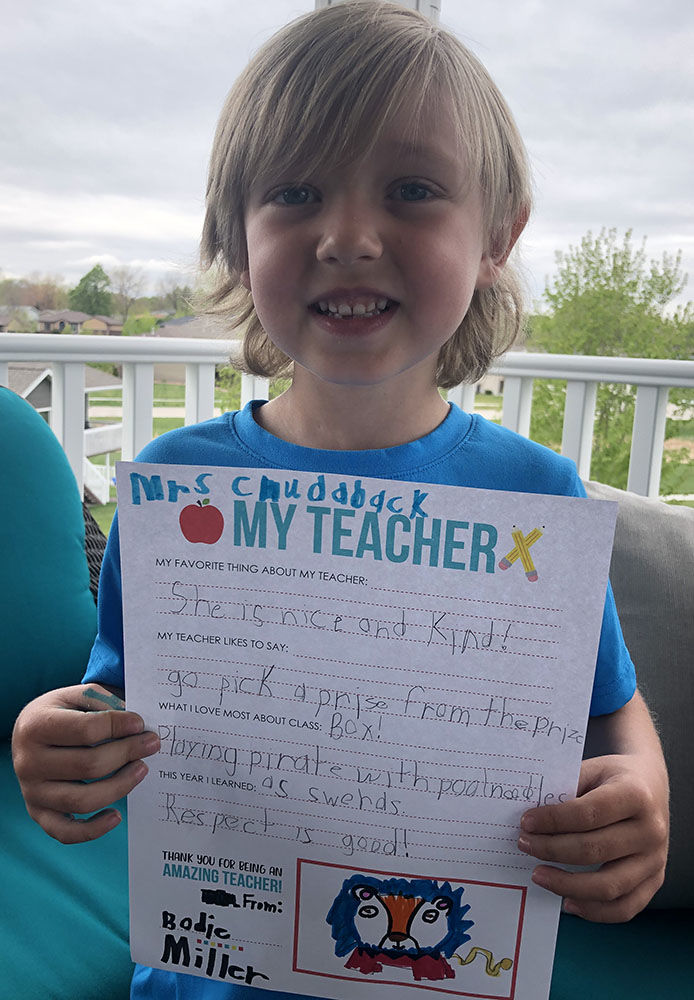 Mrs Chudaback
MY TEACHER
MY FAVORITE THING ABOUT MY TEACHER:
She is nice and Kind!
MY TEACHER LIKES TO SAY:
go pick a prise from the prize
WHAT I LOVE MOST ABOUT CLASS: Box!
Playing pirate with poolnoodles
THIS YEAR I LEARNED: as swerds
Respect is good!
THANK YOU FOR BEING AN
AMAZING TEACHER!
From:
Bodie
Miller